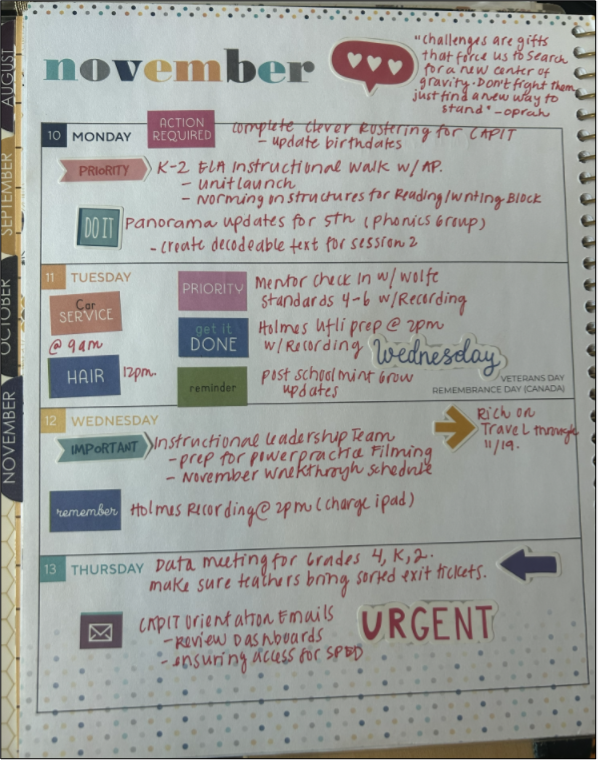 november
"Challenges are gifts
that force us to search
for a new center of
gravity. Don't fight them
just find a new way to
stand" - oprah
AUGUST
SEPTEMBER
OCTOBER
NOVEMBER
10 MONDAY
ACTION
REQUIRED
Complete Clever Rostering for CAPIT
- update birthdates
PRIORITY
K-2 ELA Instructional Walk w/ AP.
- Unit launch
- Norming on structures for Reading/Writing Block
DO IT
Panorama updates for 5th (Phonics Group)
- create decodeable text for session 2
11 TUESDAY
Car
SERVICE
@ 9am
HAIR
12pm.
PRIORITY
Mentor Check In w/ Wolfe
standards 4-6 w/Recording
get it
DONE
Holmes Ufli prep @ 2pm
w/Recording
Wednesday
reminder
post schoolmint Grow
updates
VETERANS DAY
REMEMBRANCE DAY (CANADA)
12 WEDNESDAY
IMPORTANT
Instructional Leadership Team
- prep for powerpractice Filming
- November Walkthrough schedule
Rich on
Travel through
11/19.
remember
Holmes Recording @ 2pm (charge ipad)
13 THURSDAY
Data meeting for Grades 4, K, 2.
make sure teachers bring sorted exit tickets.
CAPIT Orientation Emails
- Review Dashboards
- ensuring access for SPED
URGENT